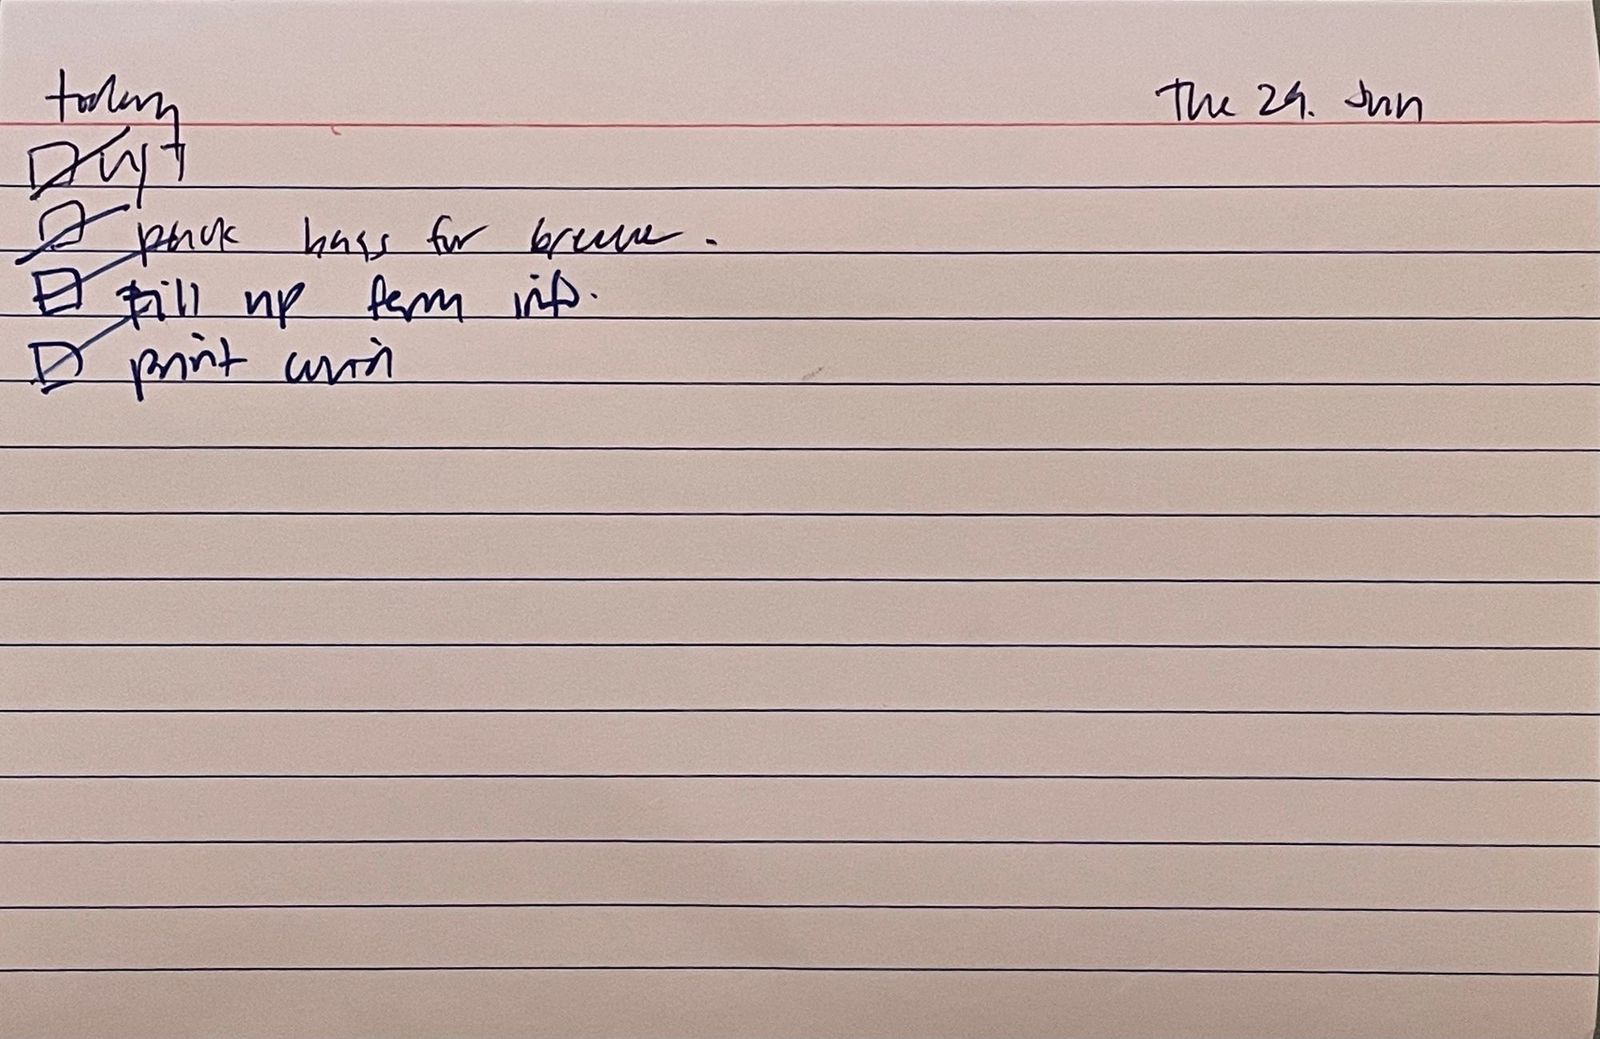 today
Thu 29. Jun
pack bags for
fill up form info.
print